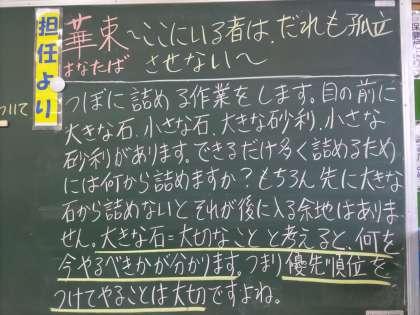 担任より
華束 〜ここにいる者は、だれも孤立
はなたば させない〜
つぼに詰める作業をします。目の前に
大きな石、小さな石、大きな砂利、小さな
砂利があります。できるだけ多く詰めるため
には何から詰めますか？もちろん先に大きな
石から詰めないとそれが後に入る余地はありま
せん。大きな石=大切なことと考えると、何を
今やるべきかが分かります。つまり優先順位を
つけてやることは大切ですよね。
ついて